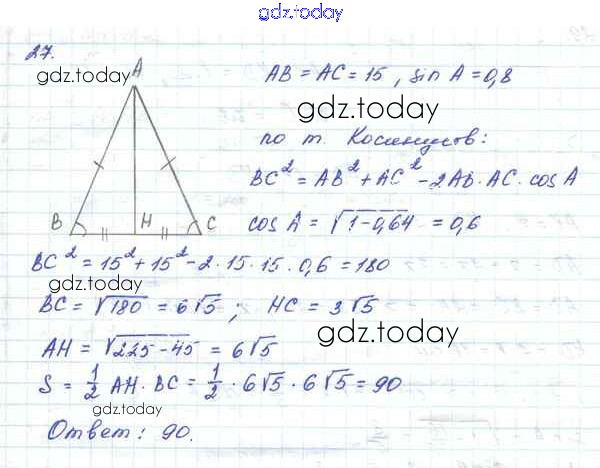 gdz.today
27.
gdz.today
A
B
H
C
AB = AC = 15, sin A = 0,8
gdz.today
по т. Косинусов:
BC² = AB² + AC² - 2AB · AC · cos A
cos A = √1-0,64 = 0,6
BC² = 15² + 15² - 2 · 15 · 15 · 0,6 = 180
gdz.today
BC = √180 = 6√5; HC = 3√5
gdz.today
AH = √225-45 = 6√5
S = 1/2 AH · BC = 1/2 · 6√5 · 6√5 = 90
gdz.today
Ответ: 90.